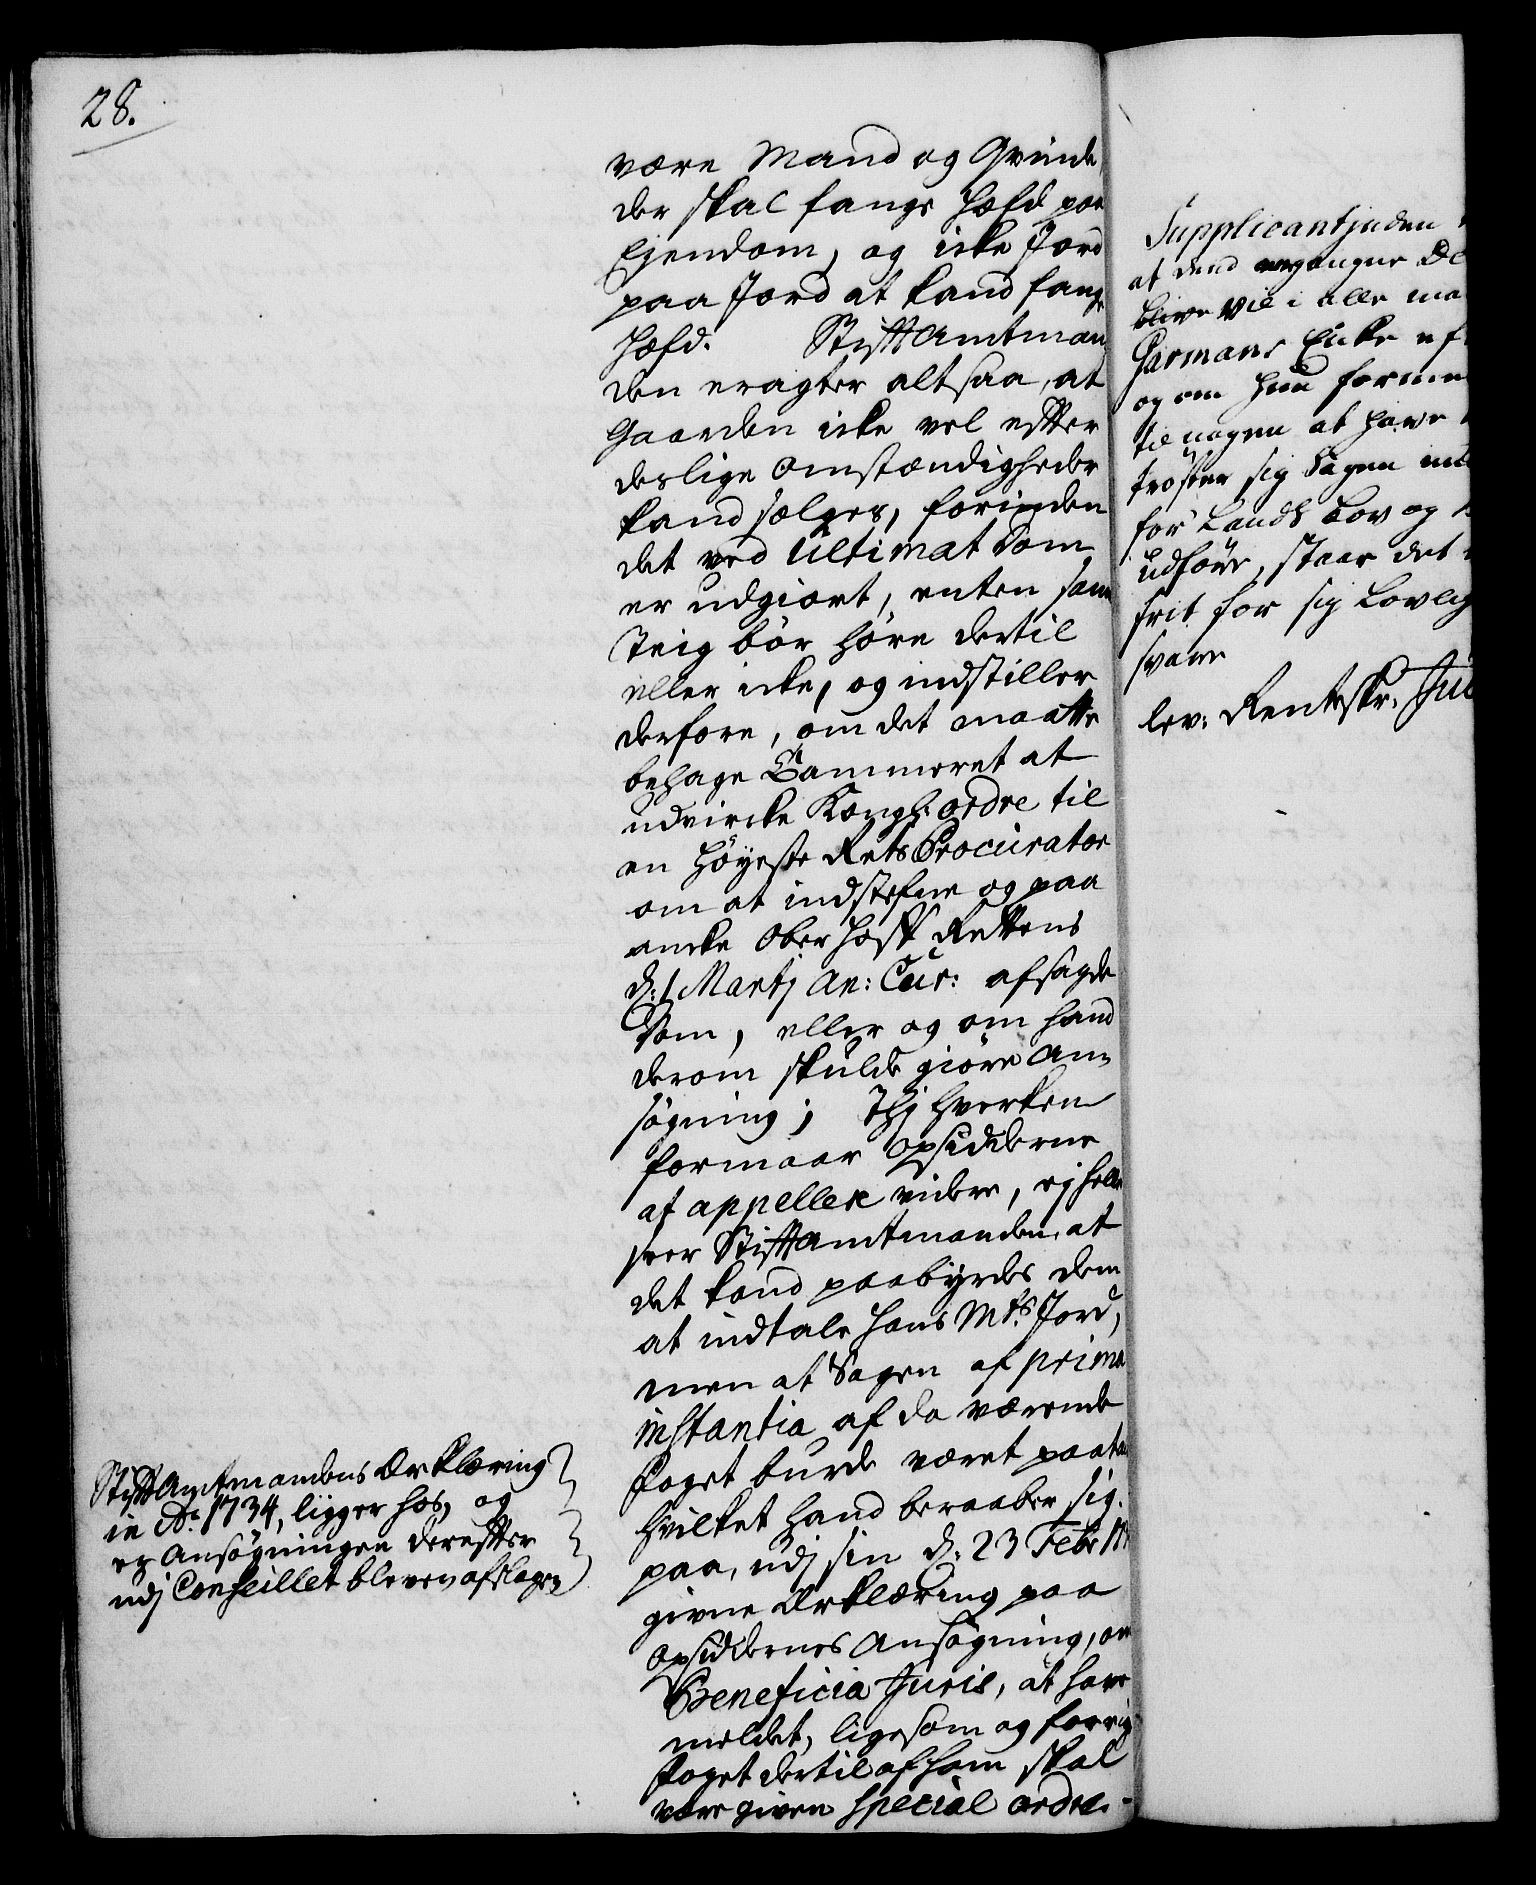 28.
være Mand og Qvinde
der skal fange Hæfd paa
Ejendom, og icke Jord
paa Jord at kand fange
Hæfd. StiftAmtman
den eragter altsaa, at
Gaarden icke vel efter
deslige Omstændigheder
kand sælges, forinden
det ved Ultimat Dom
er udgiort, enten samme
Teig bör höre dertil
eller icke, og indstiller
derfore, om det maatte
behage Cammeret at
udvircke Kongl: ordre til
en Höyeste Rets Procurator
om at indstefne og paa
ancke Ober Hoff Rettens
d: 1 Martj An: Cur: afsagde
Dom, eller og om hand
derom skulde giöre An-
sögning; Thj hverken
formaar Opsidderne
at appellere videre, ej heller
seer StiftAmtmanden, at
det kand paabyrdes dem
at indtale Hans Mts Jord,
men at Sagen af prima
instantia af da værende
Foget burde været paatalt
hvilket hand beraaber sig
paa, udj sin d: 23 Febr 17
givne Erklæring paa
Opsiddernes Ansögning, om
Beneficia Juris, at have
meldet, ligesom og forrige
Foget dertil af ham skal
være given special ordre.
StiftAmtmandens Erklæring
in Ao 1734, ligger hos, og
er Ansögningen derefter
udj Conseillet bleven afslagen
Supplicantinden
at dend ergangne De
blive vil i alle ma
Garmans Encke ef
og om hun forme
til nogen at have
tröster sig Sagen
for Lands Lov og
udföre, staar det
frit for sig Lovlig
svare
lev: Renteskr: Jud